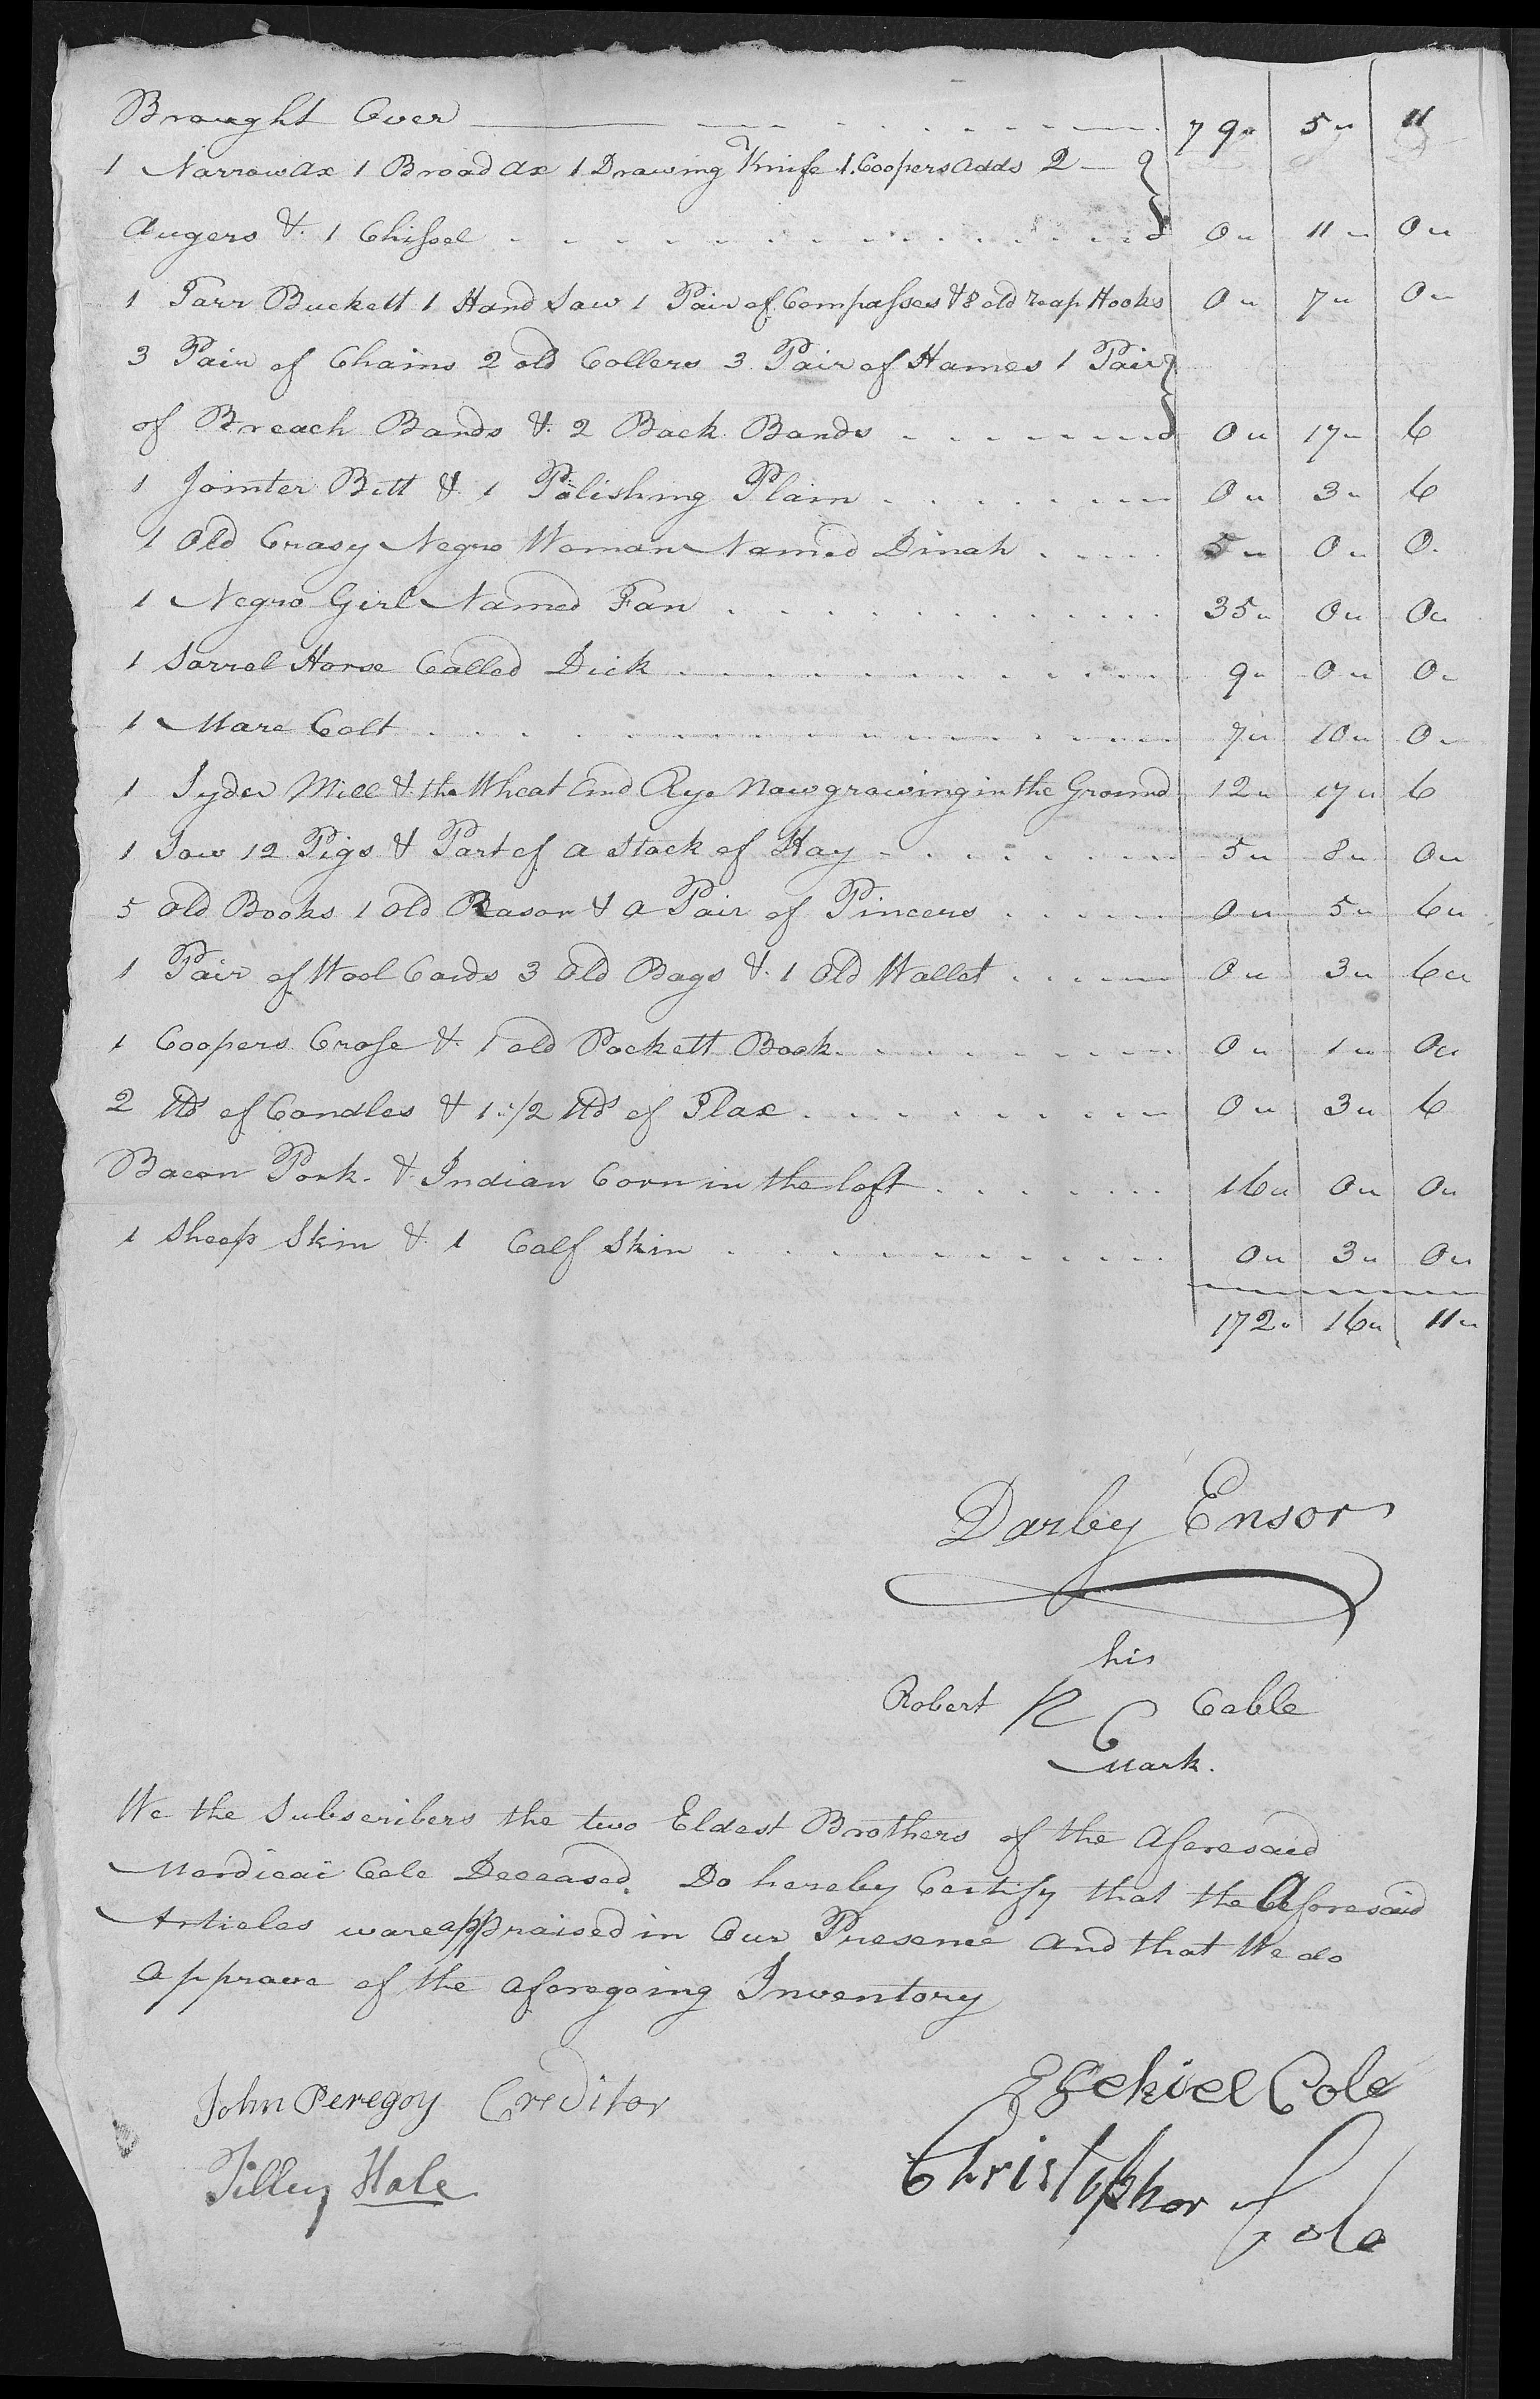 Brought Over 79 " 5 " 11
1 Narrow ax 1 Broad ax 1 Drawing Knife 1 Coopers adds 2
Augers & 1 Chissel 0 " 11 " 0 "
1 Tarr Buckett 1 Hand Saw 1 Pair of Compasses & 8 old reap Hooks 0 " 7 " 0 "
3 Pair of Chains 2 old Collers 3 Pair of Hames 1 Pair
of Breach Bands & 2 Back Bands 0 " 17 " 6
1 Jointer Bitt & 1 Polishing Plain 0 " 3 " 6
1 Old Crasy Negro Woman Named Dinah 5 " 0 " 0
1 Negro Girl Named Fan 35 " 0 " 0 "
1 Sorrel Horse Called Dick 9 " 0 " 0 "
1 Mare Colt 7 " 10 " 0 "
1 Syder Mill & the Wheat And Rye Now growing in the Ground 12 " 17 " 6
1 Sow 12 Pigs & Part of a Stack of Hay 5 " 8 " 0 "
5 old Books 1 old Rasor & a Pair of Pincers 0 " 5 " 6 "
1 Pair of Wool Cards 3 old Bags & 1 Old Wallet 0 " 3 " 6 "
1 Coopers Crose & 1 old Pockett Book 0 " 1 " 0 "
2 lbs of Candles & 1 1/2 lbs of Flax 0 " 3 " 6
Bacon Pork & Indian Corn in the loft 16 " 0 " 0 "
1 Sheep Skin & 1 Calf Skin 0 " 3 " 0 "
172 " 16 " 11 "
Darby Ensor
his
Robert R C Cable
Mark.
We the Subscribers the two Eldest Brothers of the Aforesaid
Mordicai Cole Deceased Do hereby Certify that the Aforesaid
Articles ware appraised in Our Presence and that We do
approve of the aforegoing Inventory
John Peregoy Creditor Ezekiel Cole
Tilley Hale Christophor Cole